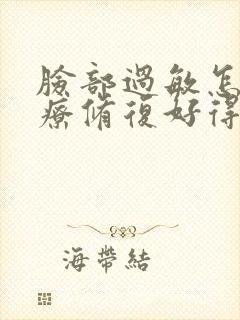 臉部過敏怎
療脩復好得
海帶結